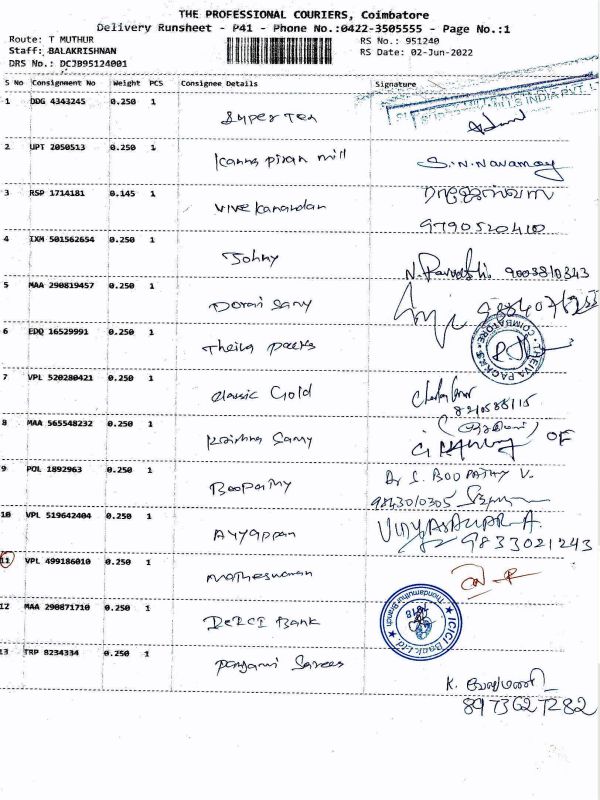 THE PROFESSIONAL COURIERS, Coimbatore
Delivery Runsheet - P41 - Phone No.:0422-3505555 - Page No.:1
Route: T MUTHUR RS No.: 951240
Staff: BALAKRISHNAN RS Date: 02-Jun-2022
DRS No.: DCJB95124001
S No Consignment No Weight PCS Consignee Details Signature
1 DDG 4343245 0.250 1
INDIA PVT. LT
Super Tex
2 UPT 2050513 0.250 1
Kanna piran mill S.N. Navamoy
3 RSP 1714181 0.145 1
Vivekanandan 9790520410
4 IXM 501562654 0.250 1
Johny N. Parvathi 9003810343
5 MAA 290819457 0.250 1
Dorai Samy
6 EDQ 16529991 0.250 1
Theiva packs THEIVA PACKS COIMBATORE
7 VPL 520280421 0.250 1
Classic Gold
8 MAA 565548232 0.250 1
Krishna Samy OF
9 POL 1892963 0.250 1
Boopathy Dr S. BOOPATHY V.
9843010305
10 VPL 519642404 0.250 1
Ayyappan VIJYASANAR A.
9833021243
11 VPL 499186010 0.250 1
Matheswaran
12 MAA 290871710 0.250 1
ICICI Bank ICICI Bank Ltd Thondamuthur Branch
13 TRP 8234334 0.250 1
K.
8973627282